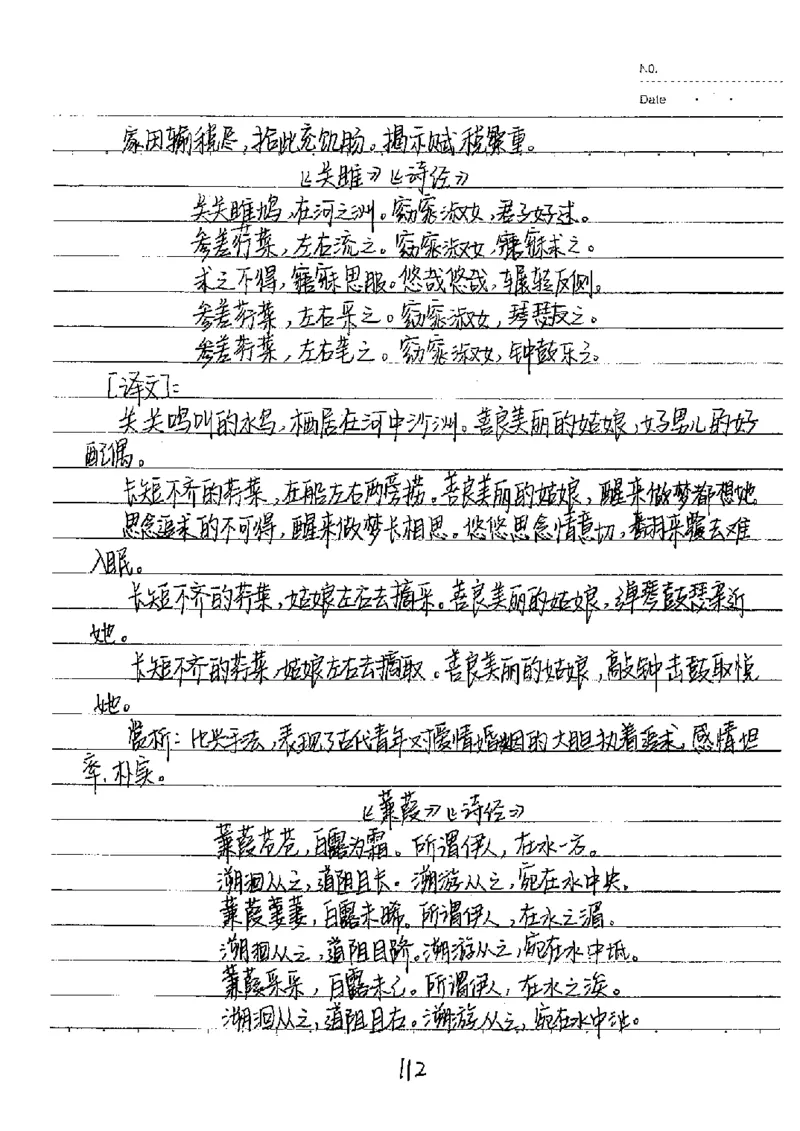 No.
Date
家田输税尽,拾此充饥肠。揭示赋税繁重。
《关雎》《诗经》
关关雎鸠,在河之洲。窈窕淑女,君子好逑。
参差荇菜,左右流之。窈窕淑女,寤寐求之。
求之不得,寤寐思服。悠哉悠哉,辗轻反侧。
参差荇菜,左右采之。窈窕淑女,琴瑟友之。
参差荇菜,左右芼之。窈窕淑女,钟鼓乐之。
[译文]:
关关鸣叫的水鸟,栖居在河中沙洲。善良美丽的姑娘,好男儿的好
配偶。
长短不齐的荇菜,在船左右两旁捞。善良美丽的姑娘,醒来做梦都想她
思念追求的不可得,醒来做梦长相思。悠悠思念情意切,翻来覆去难
入眠。
长短不齐的荇菜,姑娘左右去摘采。善良美丽的姑娘,弹琴鼓瑟亲近
她。
长短不齐的荇菜,姑娘左右去摘取。善良美丽的姑娘,敲钟击鼓取悦
她。
赏析:比兴手法,表现了古代青年对爱情婚姻的大胆执着追求,感情坦
率、朴实。
《蒹葭》《诗经》
蒹葭苍苍,白露为霜。所谓伊人,在水一方。
溯洄从之,道阻且长。溯游从之,宛在水中央。
蒹葭萋萋,白露未晞。所谓伊人,在水之湄。
溯洄从之,道阻且跻。溯游从之,宛在水中坻。
蒹葭采采,白露未已。所谓伊人,在水之涘。
溯洄从之,道阻且右。溯游从之,宛在水中沚。
112